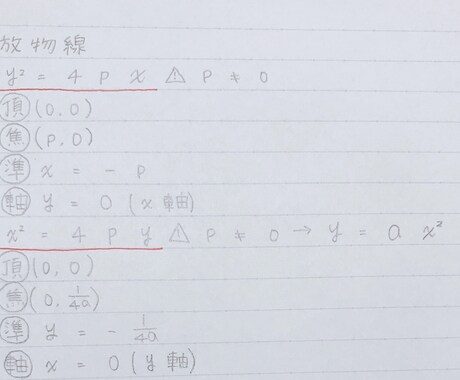 放物線
y² = 4 p x ⚠ p ≠ 0
頂 (0, 0)
焦 (p, 0)
準 x = - p
軸 y = 0 (x 軸)
x² = 4 p y ⚠ p ≠ 0 → y = a x²
頂 (0, 0)
焦 (0, 1/4a)
準 y = - 1/4a
軸 x = 0 (y 軸)